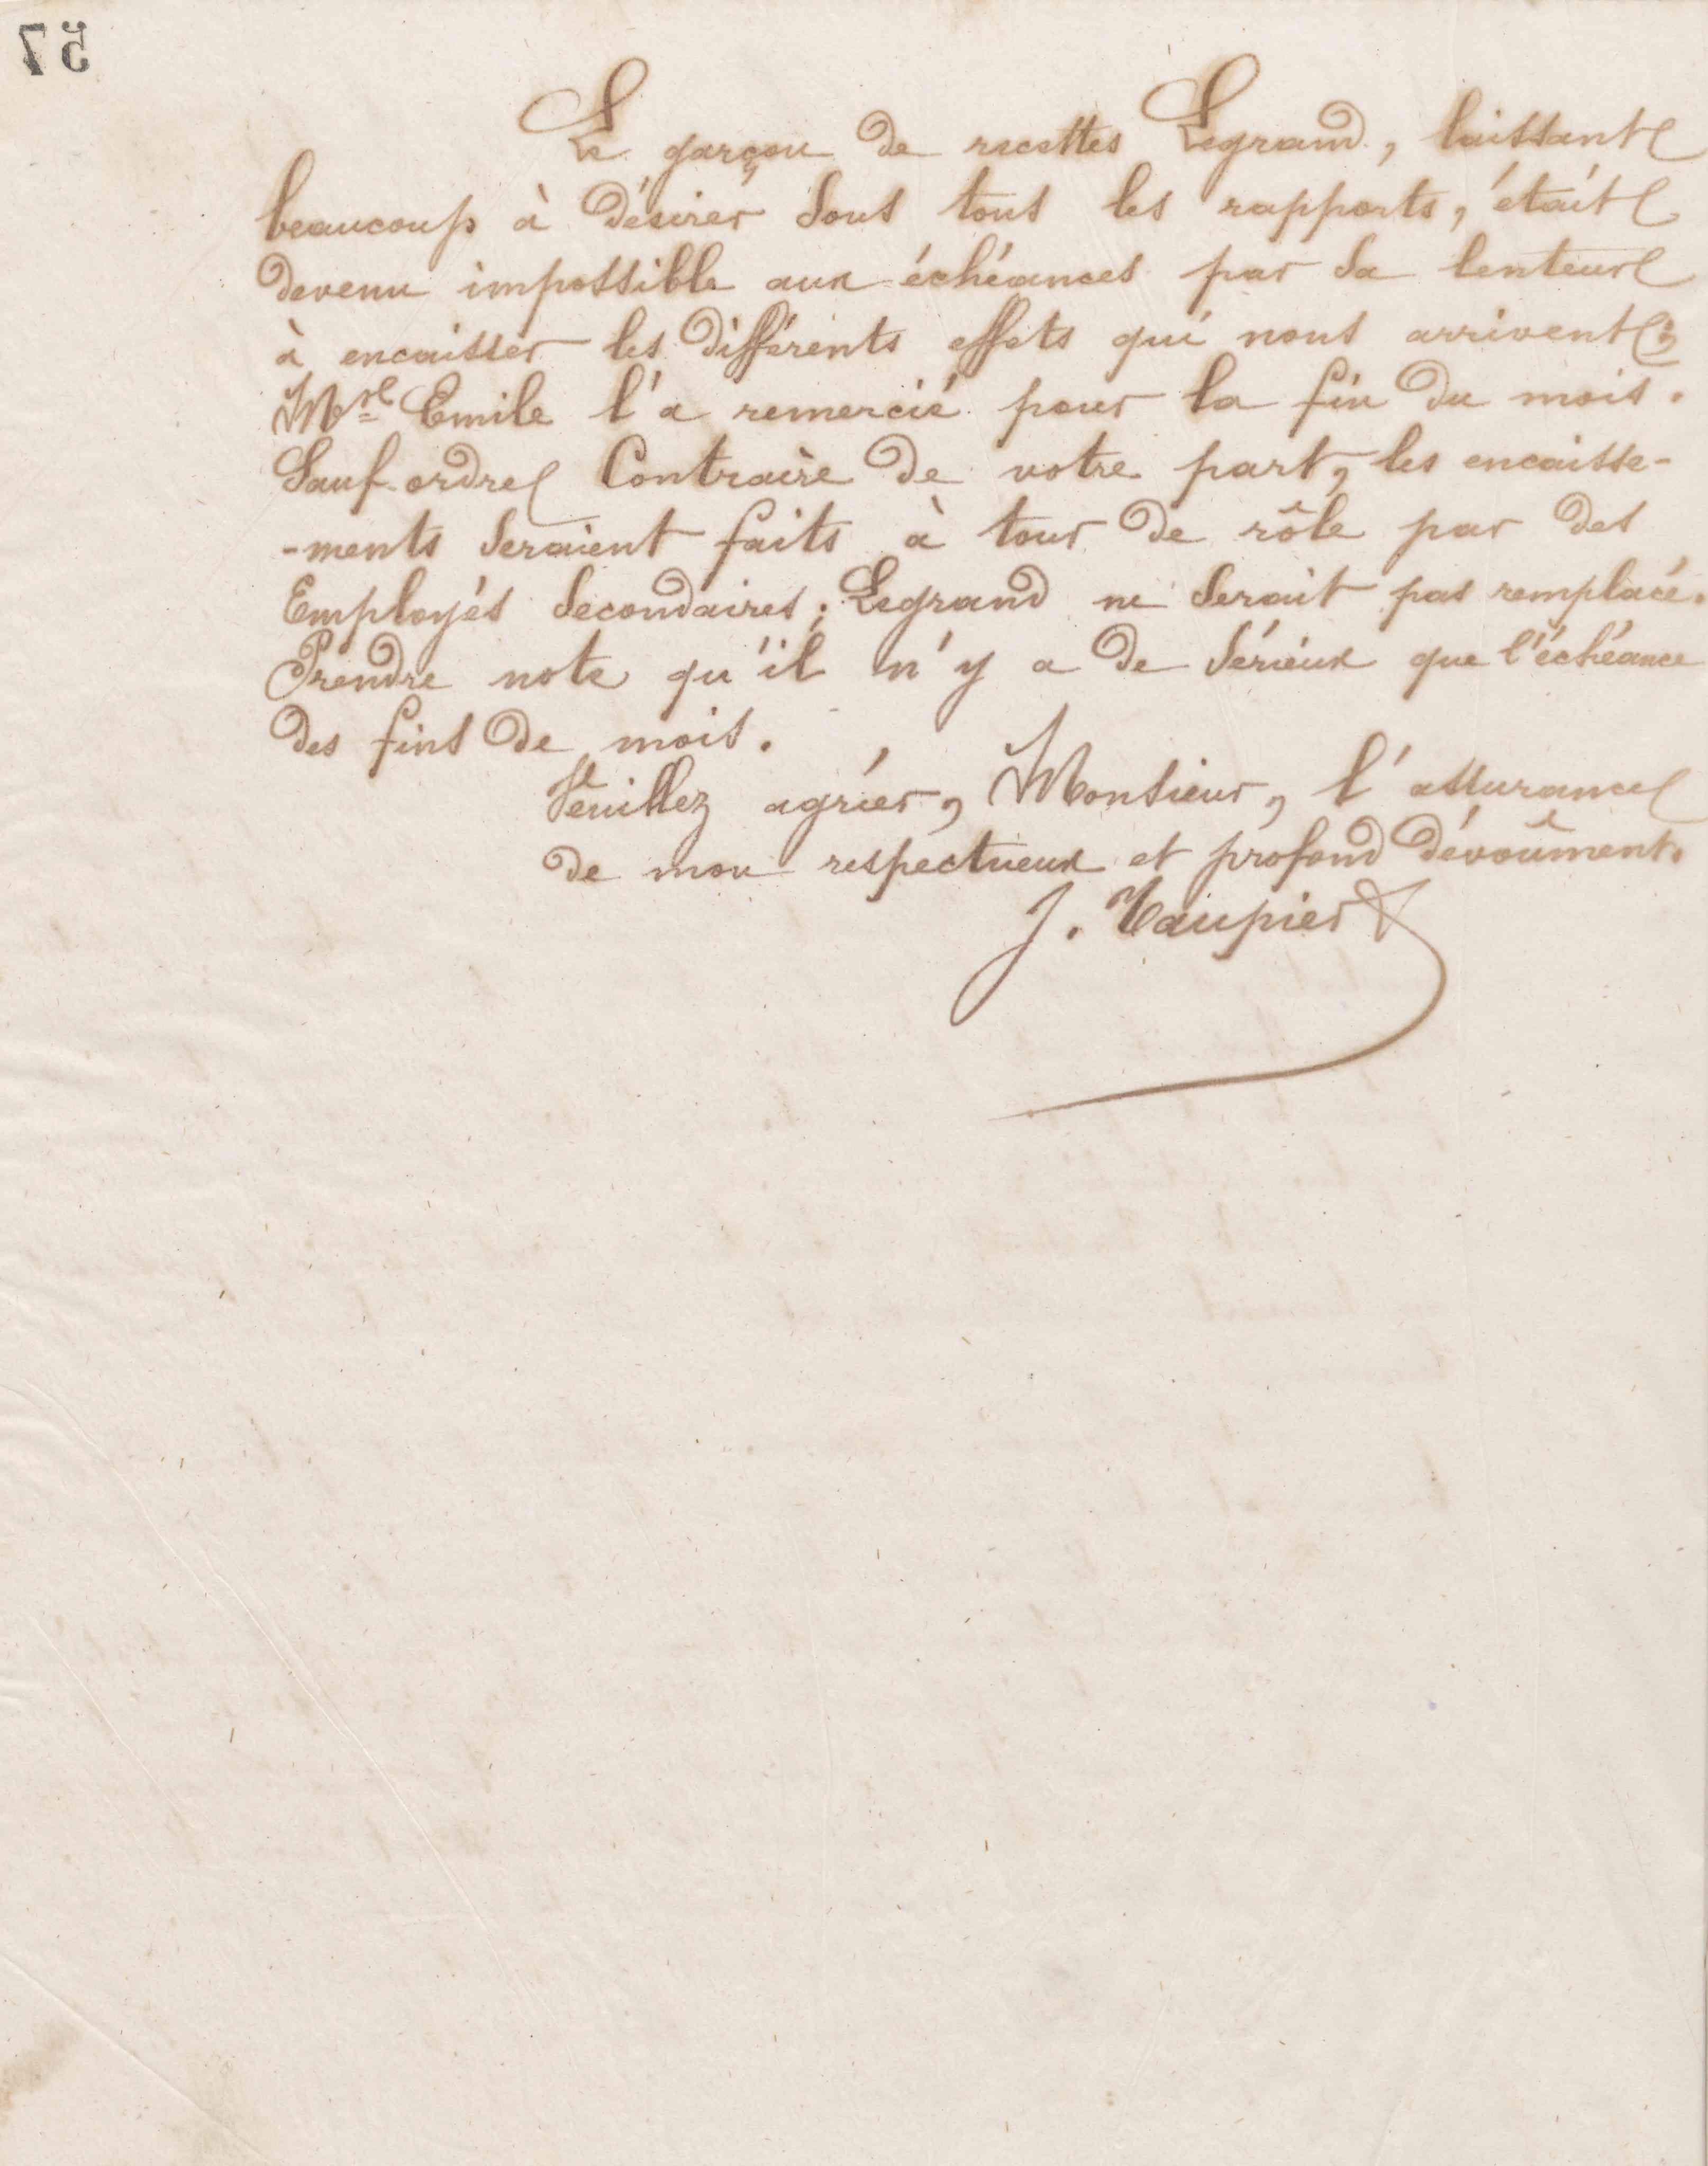 57
Le garçon de recettes Legrand, laissant
beaucoup à désirer sous tous les rapports, était
devenu impossible aux échéances par sa lenteur
à encaisser les différents effets qui nous arrivent;
Mr Emile l'a remercié pour la fin du mois.
Sauf ordre Contraire de votre part, les encaisse-
-ments seraient faits à tour de rôle par des
Employés secondaires; Legrand ne serait pas remplacé.
Prendre note qu'il n'y a de sérieux que l'échéance
des fins de mois.
Veuillez agréer, Monsieur, l'assurance
de mon respectueux et profond dévoûment.
J. Taupier